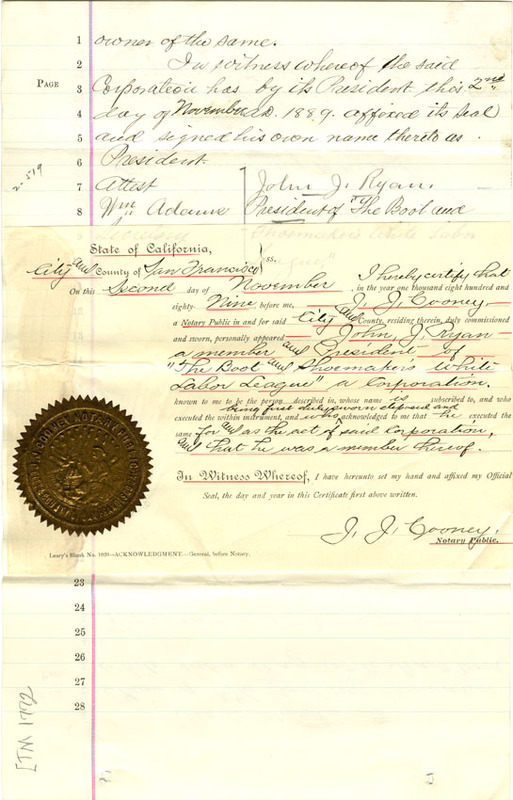 PAGE
2-519
1 owner of the same.
2 In witness whereof the said
3 Corporation has by its President, this 2nd
4 day of November A.D. 1889. affixed its seal
5 and signed his own name thereto as
6 President.
7 Attest John J. Ryan.
8 Wm Adams President of "The Boot and
Secretary Shoemakers White Labor
League"
State of California,
City and County of San Francisco } ss.
I hereby certify that
On this Second day of November , in the year one thousand eight hundred and
eighty- Nine before me, J. J. Cooney,
a Notary Public in and for said City and County, residing therein, duly commissioned
and sworn, personally appeared John J. Ryan
a member and President of
"The Boot and Shoemakers White
Labor League" a Corporation.
known to me to be the person described in, whose name is subscribed to, and who
being first duly sworn deposed and
executed the within instrument, and who acknowledged to me that he executed the
same for and as the act of said Corporation,
and that he was a member thereof.
In Witness Whereof, I have hereunto set my hand and affixed my Official
Seal, the day and year in this Certificate first above written.
J. J. Cooney.
Notary Public.
Leary's Blank No. 1020—ACKNOWLEDGMENT—General, before Notary.
23
24
25
26
27
28
[TM 1772